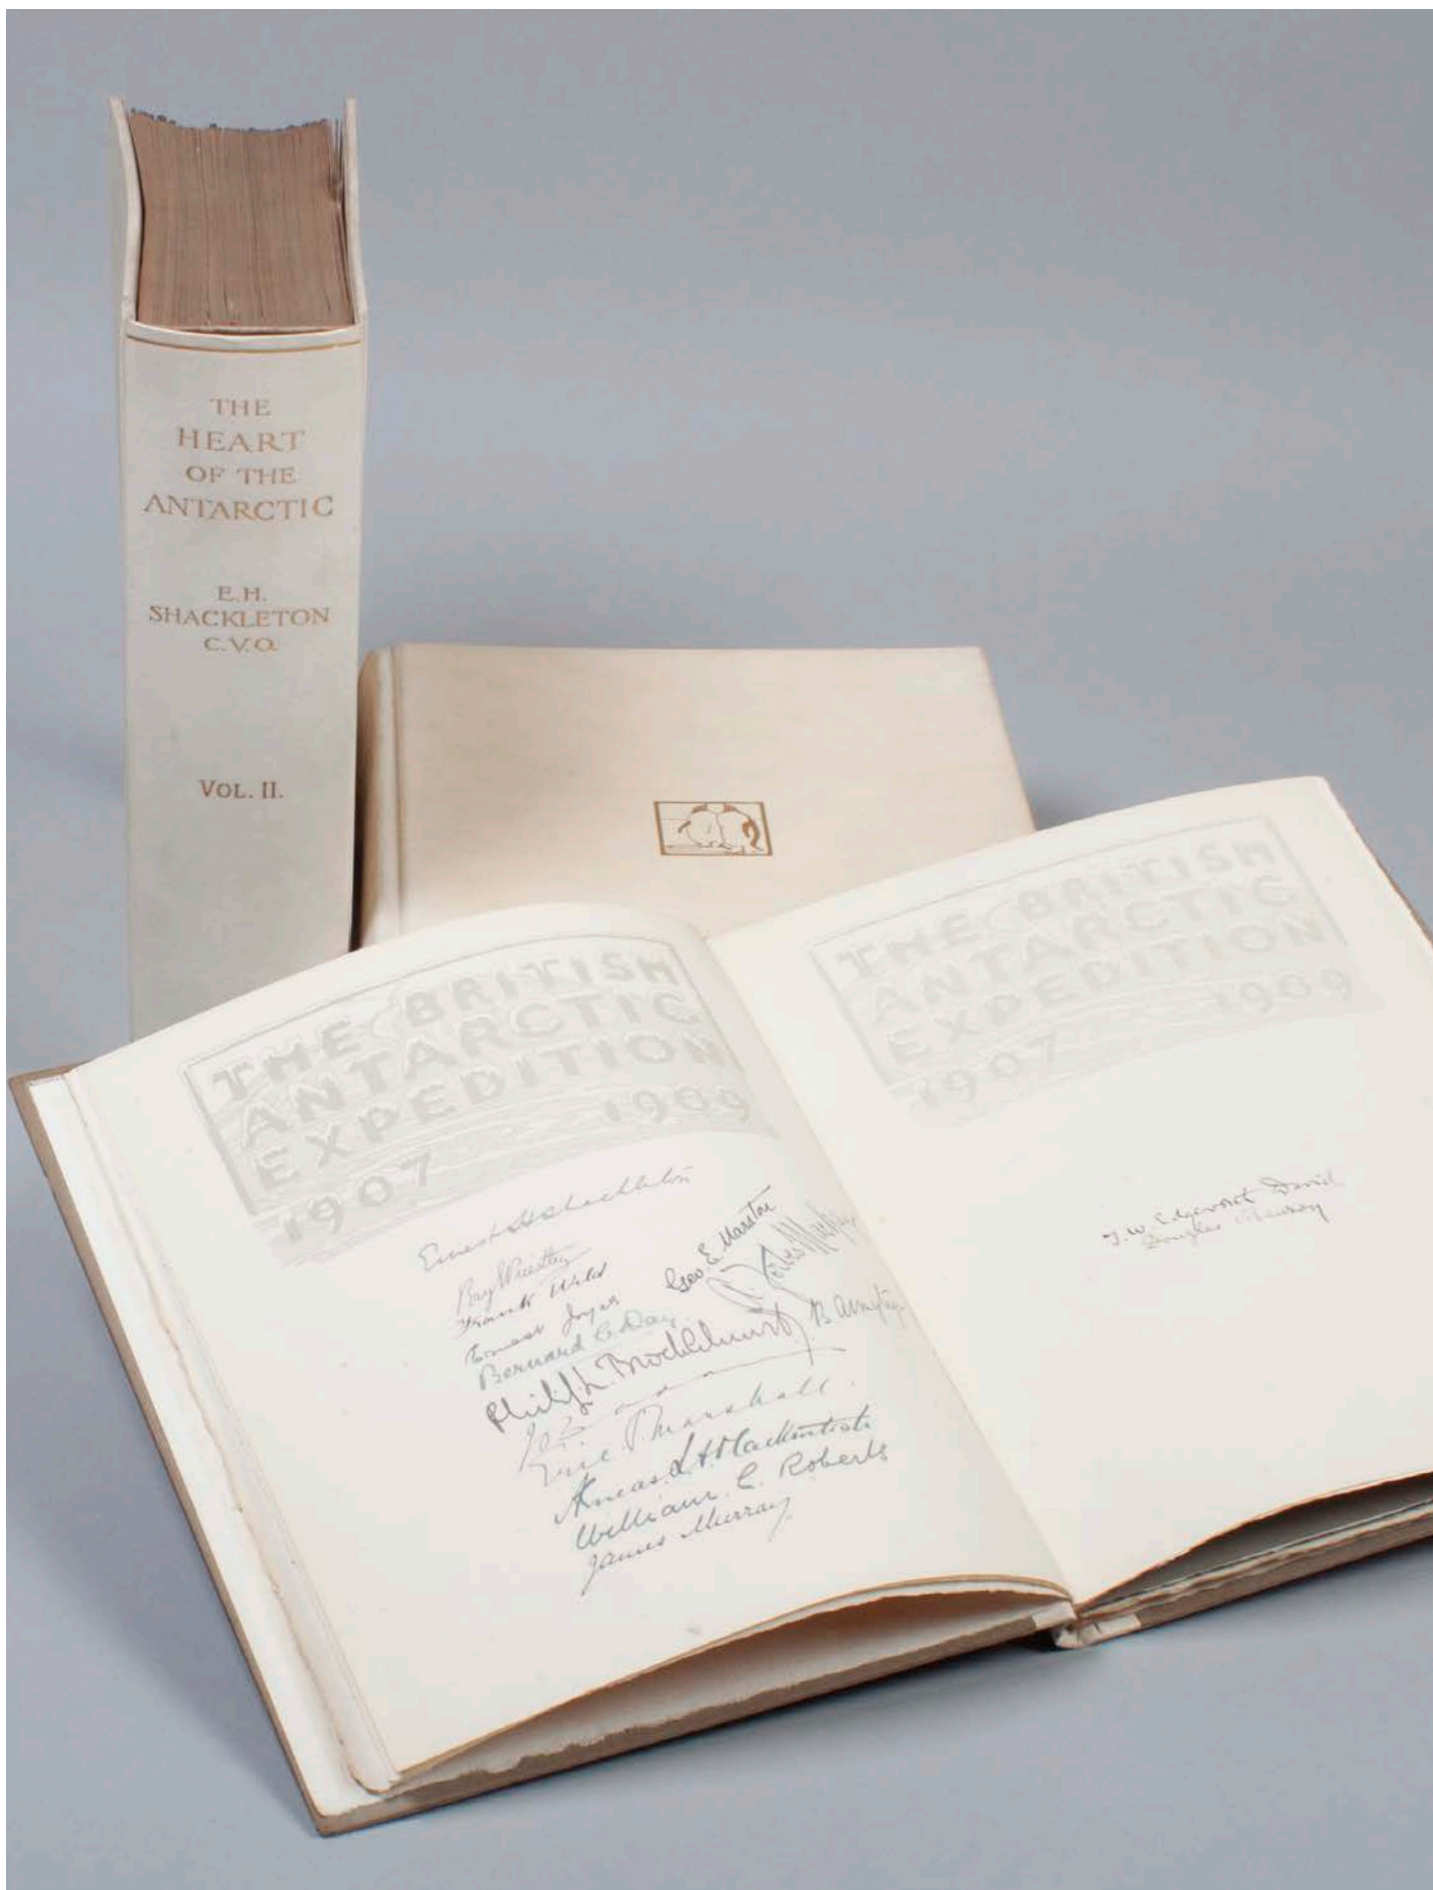 THE
HEART
OF THE
ANTARCTIC
E.H.
SHACKLETON
C.V.O.
VOL. II.
THE BRITISH
ANTARCTIC
EXPEDITION
1907 1909
Ernest H Shackleton
Ray Priestley
Frank Wild
Ernest Joyce
Bernard C. Day.
Philip L. Brocklehurst
Eric S. Marshall.
Aeneas L. A. Mackintosh
William. C. Roberts
James Murray.
Geo. E. Marston
B Armytage.
THE BRITISH
ANTARCTIC
EXPEDITION
1907 1909
T. W. Edgeworth David
Douglas Mawson